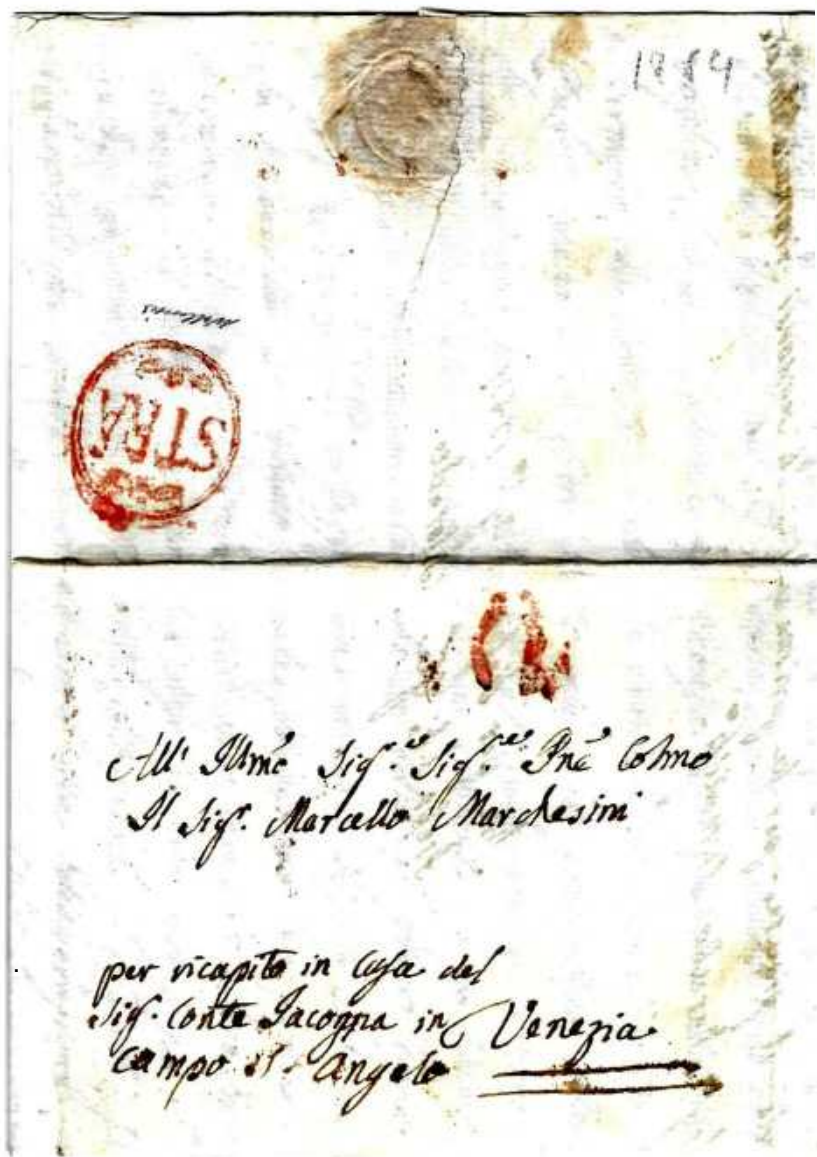 STRA
All' Illmo Sigr. Sigr. Pne Colmo
Il Sigr. Marcello Marchesini
per ricapito in Casa del
Sigr. Conte Jacogna in Venezia
Campo S. Angelo